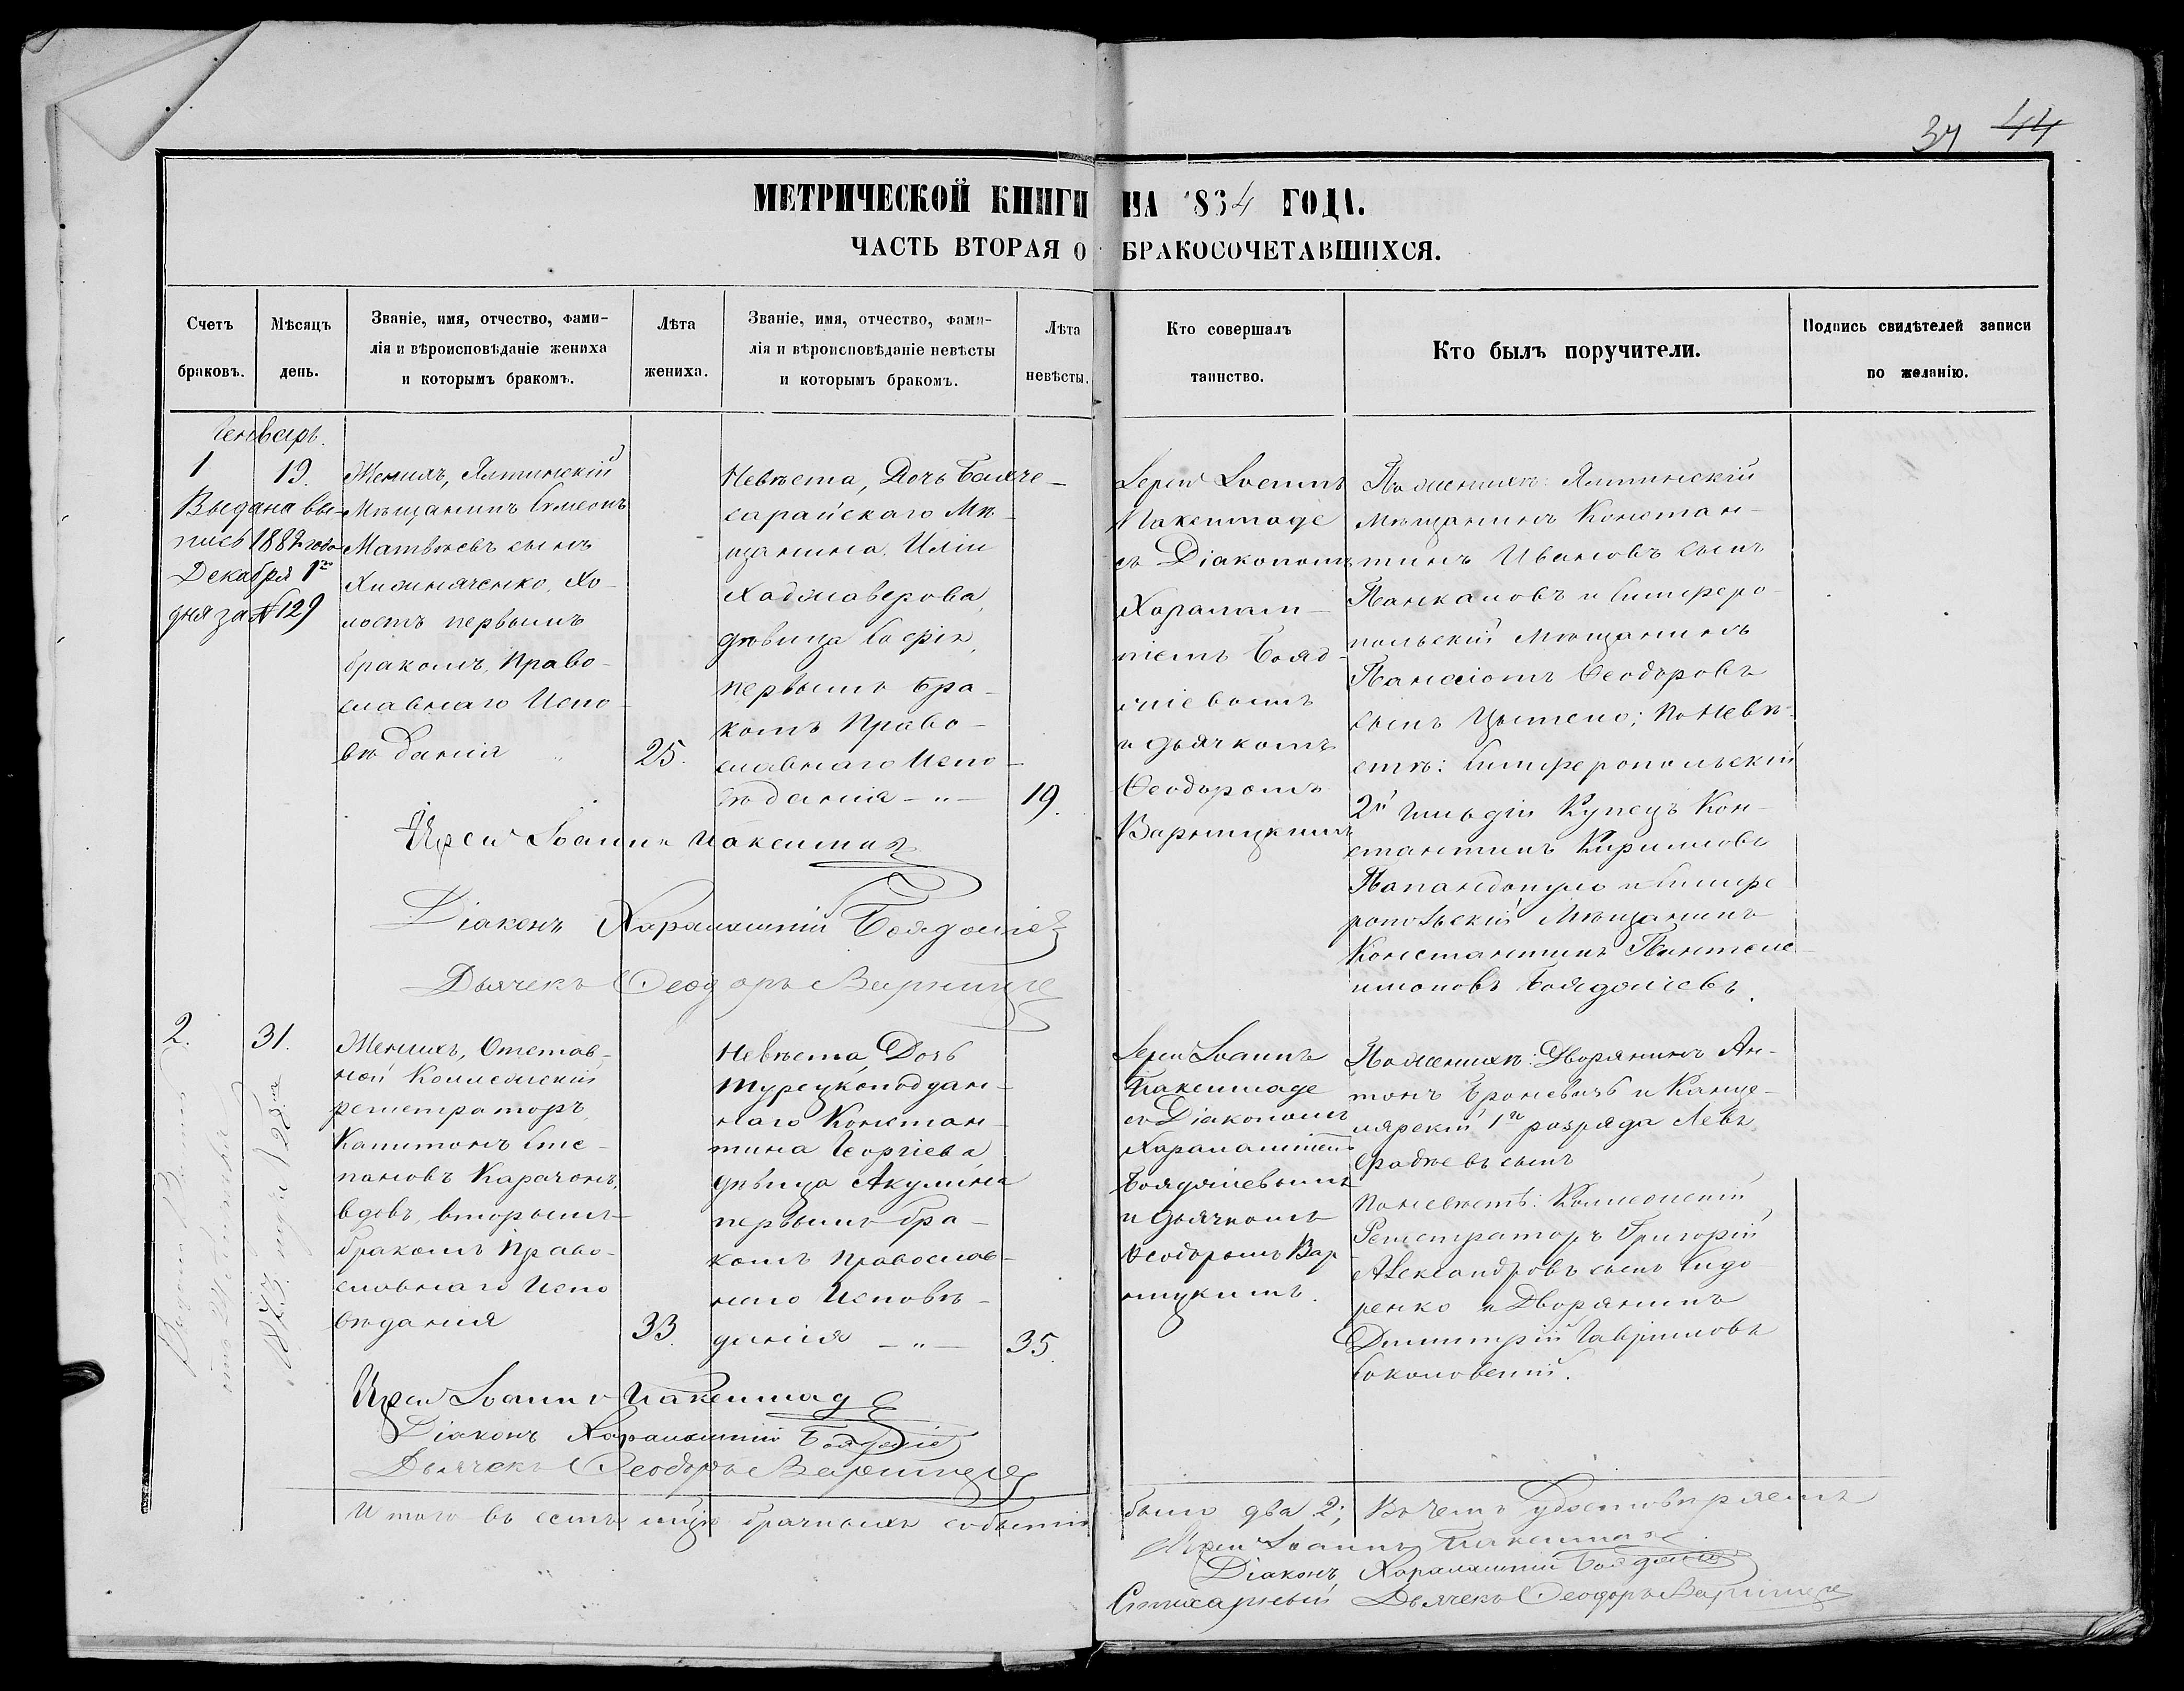 34 44
МЕТРИЧЕСКОЙ КНИГИ НА 1864 ГОДА.
ЧАСТЬ ВТОРАЯ О БРАКОСОЧЕТАВШИХСЯ.
Счетъ браковъ.
Мѣсяцъ день.
Званіе, имя, отчество, фами-
лія и вѣроисповѣданіе жениха
и которымъ бракомъ.
Лѣта жениха.
Званіе, имя, отчество, фами-
лія и вѣроисповѣданіе невѣсты
и которымъ бракомъ.
Лѣта невѣсты.
Кто совершалъ
таинство.
Кто былъ поручители.
Подпись свидѣтелей записи
по желанію.
Генваръ.
1
19.
Выдана вы-
пись 1882 года
Декабря 1го
дня за № 129
Женихъ, Ялтинскій
Мѣщанинъ Симеонъ
Матвѣевъ сынъ
Хо-
лостъ первымъ
бракомъ, Право-
славнаго Испо-
вѣданія
25.
Невѣста, Дочь Бахче-
сарайскаго Мѣ-
щанина Иліи
Хаджаверова,
дѣвица Софія,
первымъ бра-
комъ Право-
славнаго Испо-
вѣданія - " -
19.
Іерей Іоаннъ
Макентаде
съ Діакономъ
Харалам-
піемъ Бояд-
жіевымъ
и дьячкомъ
Ѳеодоромъ
Варницкимъ
По женихѣ: Ялтинскій
мѣщанинъ Констан-
тинъ Ивановъ сынъ
и Симферо-
польскій мѣщанинъ
Панаіотъ Ѳеодоровъ
сынъ По невѣ-
стѣ: Симферопольскій
2й Гильдіи Купецъ Кон-
стантинъ Кириловъ
Попандопуло и Симфе
ропольскій Мѣщанинъ
Константинъ Пантеле-
имоновъ Бояджіевъ.
Іерей Іоаннъ
Діаконъ Харалампій Бояджіевъ
Дьячекъ Ѳеодоръ Варницкій
2.
31.
Женихъ, Отстав-
ной Коллежскій
регистраторъ,
Капитонъ Сте-
пановъ Карачонъ,
вдовъ, вторымъ
бракомъ Право-
славнаго Испо
вѣданія
33.
Невѣста, Дочь
Турецкоподдан-
наго Констан-
тина Георгіева
дѣвица Акулина
первымъ бра-
комъ Православ-
наго Исповѣ-
данія - " -
35.
Іерей Іоаннъ
съ Діакономъ
Харалампіемъ
Бояджіевымъ
и дьячкомъ
Ѳеодоромъ Вар
ницкимъ.
По женихѣ: Дворянинъ Ан-
тонъ Броневичъ и Канце-
лярскій 1го разряда Левъ
сынъ
По невѣстѣ: Коллежскій
Регистраторъ Григорій
Александровъ сынъ Сидо
ренко и Дворянинъ
Димитрій Гавриловъ
Соколовскій.
Іерей Іоаннъ
Діаконъ Харалампій Бояджіевъ
Дьячекъ Ѳеодоръ Варницкій
И того въ семъ мѣсяцѣ брачныхъ событій было два 2; Въ чемъ удостовѣряемъ
Іерей Іоаннъ
Діаконъ Харалампій Бояджіевъ
Стихарный Дьячекъ Ѳеодоръ Варницкій